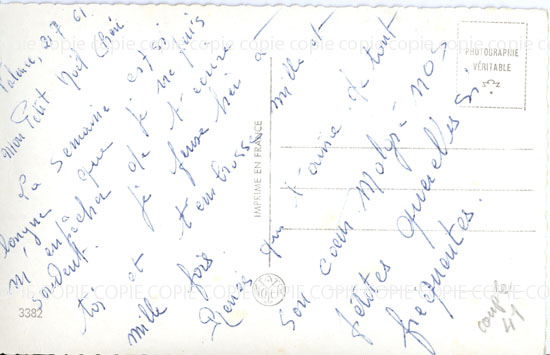 Palavas, 21.7.61
Mon Petit Noël Chéri
La semaine est si
longue que je ne puis
m'empêcher de t'écrire
souvent. je pense bien à
toi et t'embrasse mille et
mille fois.
Renée qui t'aime de tout
son cœur malgré nos
petites querelles si
fréquentes.
PHOTOGRAPHIE
VÉRITABLE
IMPRIMÉ EN FRANCE
3382
couple
41
COPIE COPIE COPIE COPIE COPIE COPIE COPIE